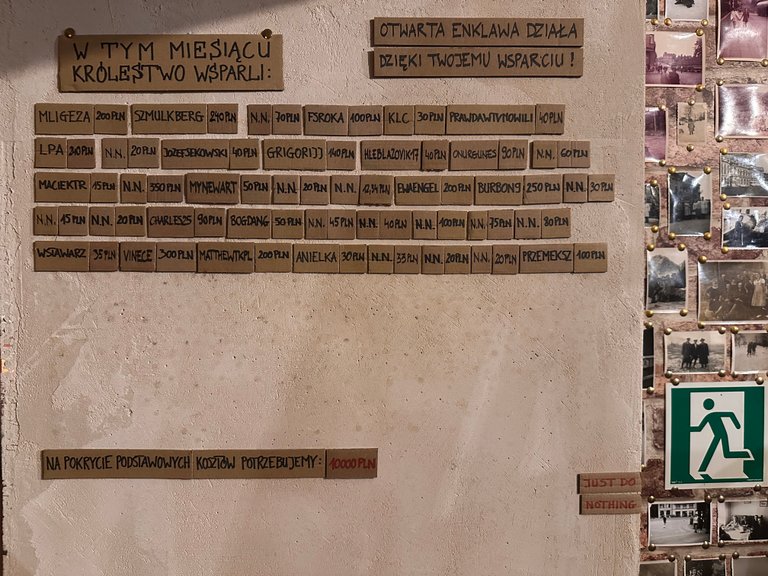 W TYM MIESIĄCU
KRÓLESTWO WSPARLI:
OTWARTA ENKLAWA DZIAŁA
DZIĘKI TWOJEMU WSPARCIU!
MLIGEZA 200 PLN SZMULKBERG 240 PLN N.N. 70 PLN FSROKA 100 PLN KLC 30 PLN PRAWDAWTVNOWILI 40 PLN
LPA 210 PLN N.N. 20 PLN JOZEFSEKOWSKI 40 PLN GRIGORIJJ 140 PLN HLEBLAZOVIK17 40 PLN ONURGUNES 90 PLN N.N. 60 PLN
MACIEKTR 15 PLN N.N. 350 PLN MYNEWART 50 PLN N.N. 20 PLN N.N. 12,34 PLN EWAENGEL 200 PLN BURBON9 250 PLN N.N. 30 PLN
N.N. 15 PLN N.N. 20 PLN CHARLES25 90 PLN BOGDANG 50 PLN N.N. 45 PLN N.N. 40 PLN N.N. 100 PLN N.N. 75 PLN N.N. 80 PLN
WSTAWARZ 35 PLN VINECE 300 PLN MATTHEWTKPL 200 PLN ANIELKA 30 PLN N.N. 33 PLN N.N. 20 PLN N.N. 20 PLN PRZEMEKSZ 100 PLN
NA POKRYCIE PODSTAWOWYCH KOSZTÓW POTRZEBUJEMY: 10000 PLN
JUST DO
NOTHING